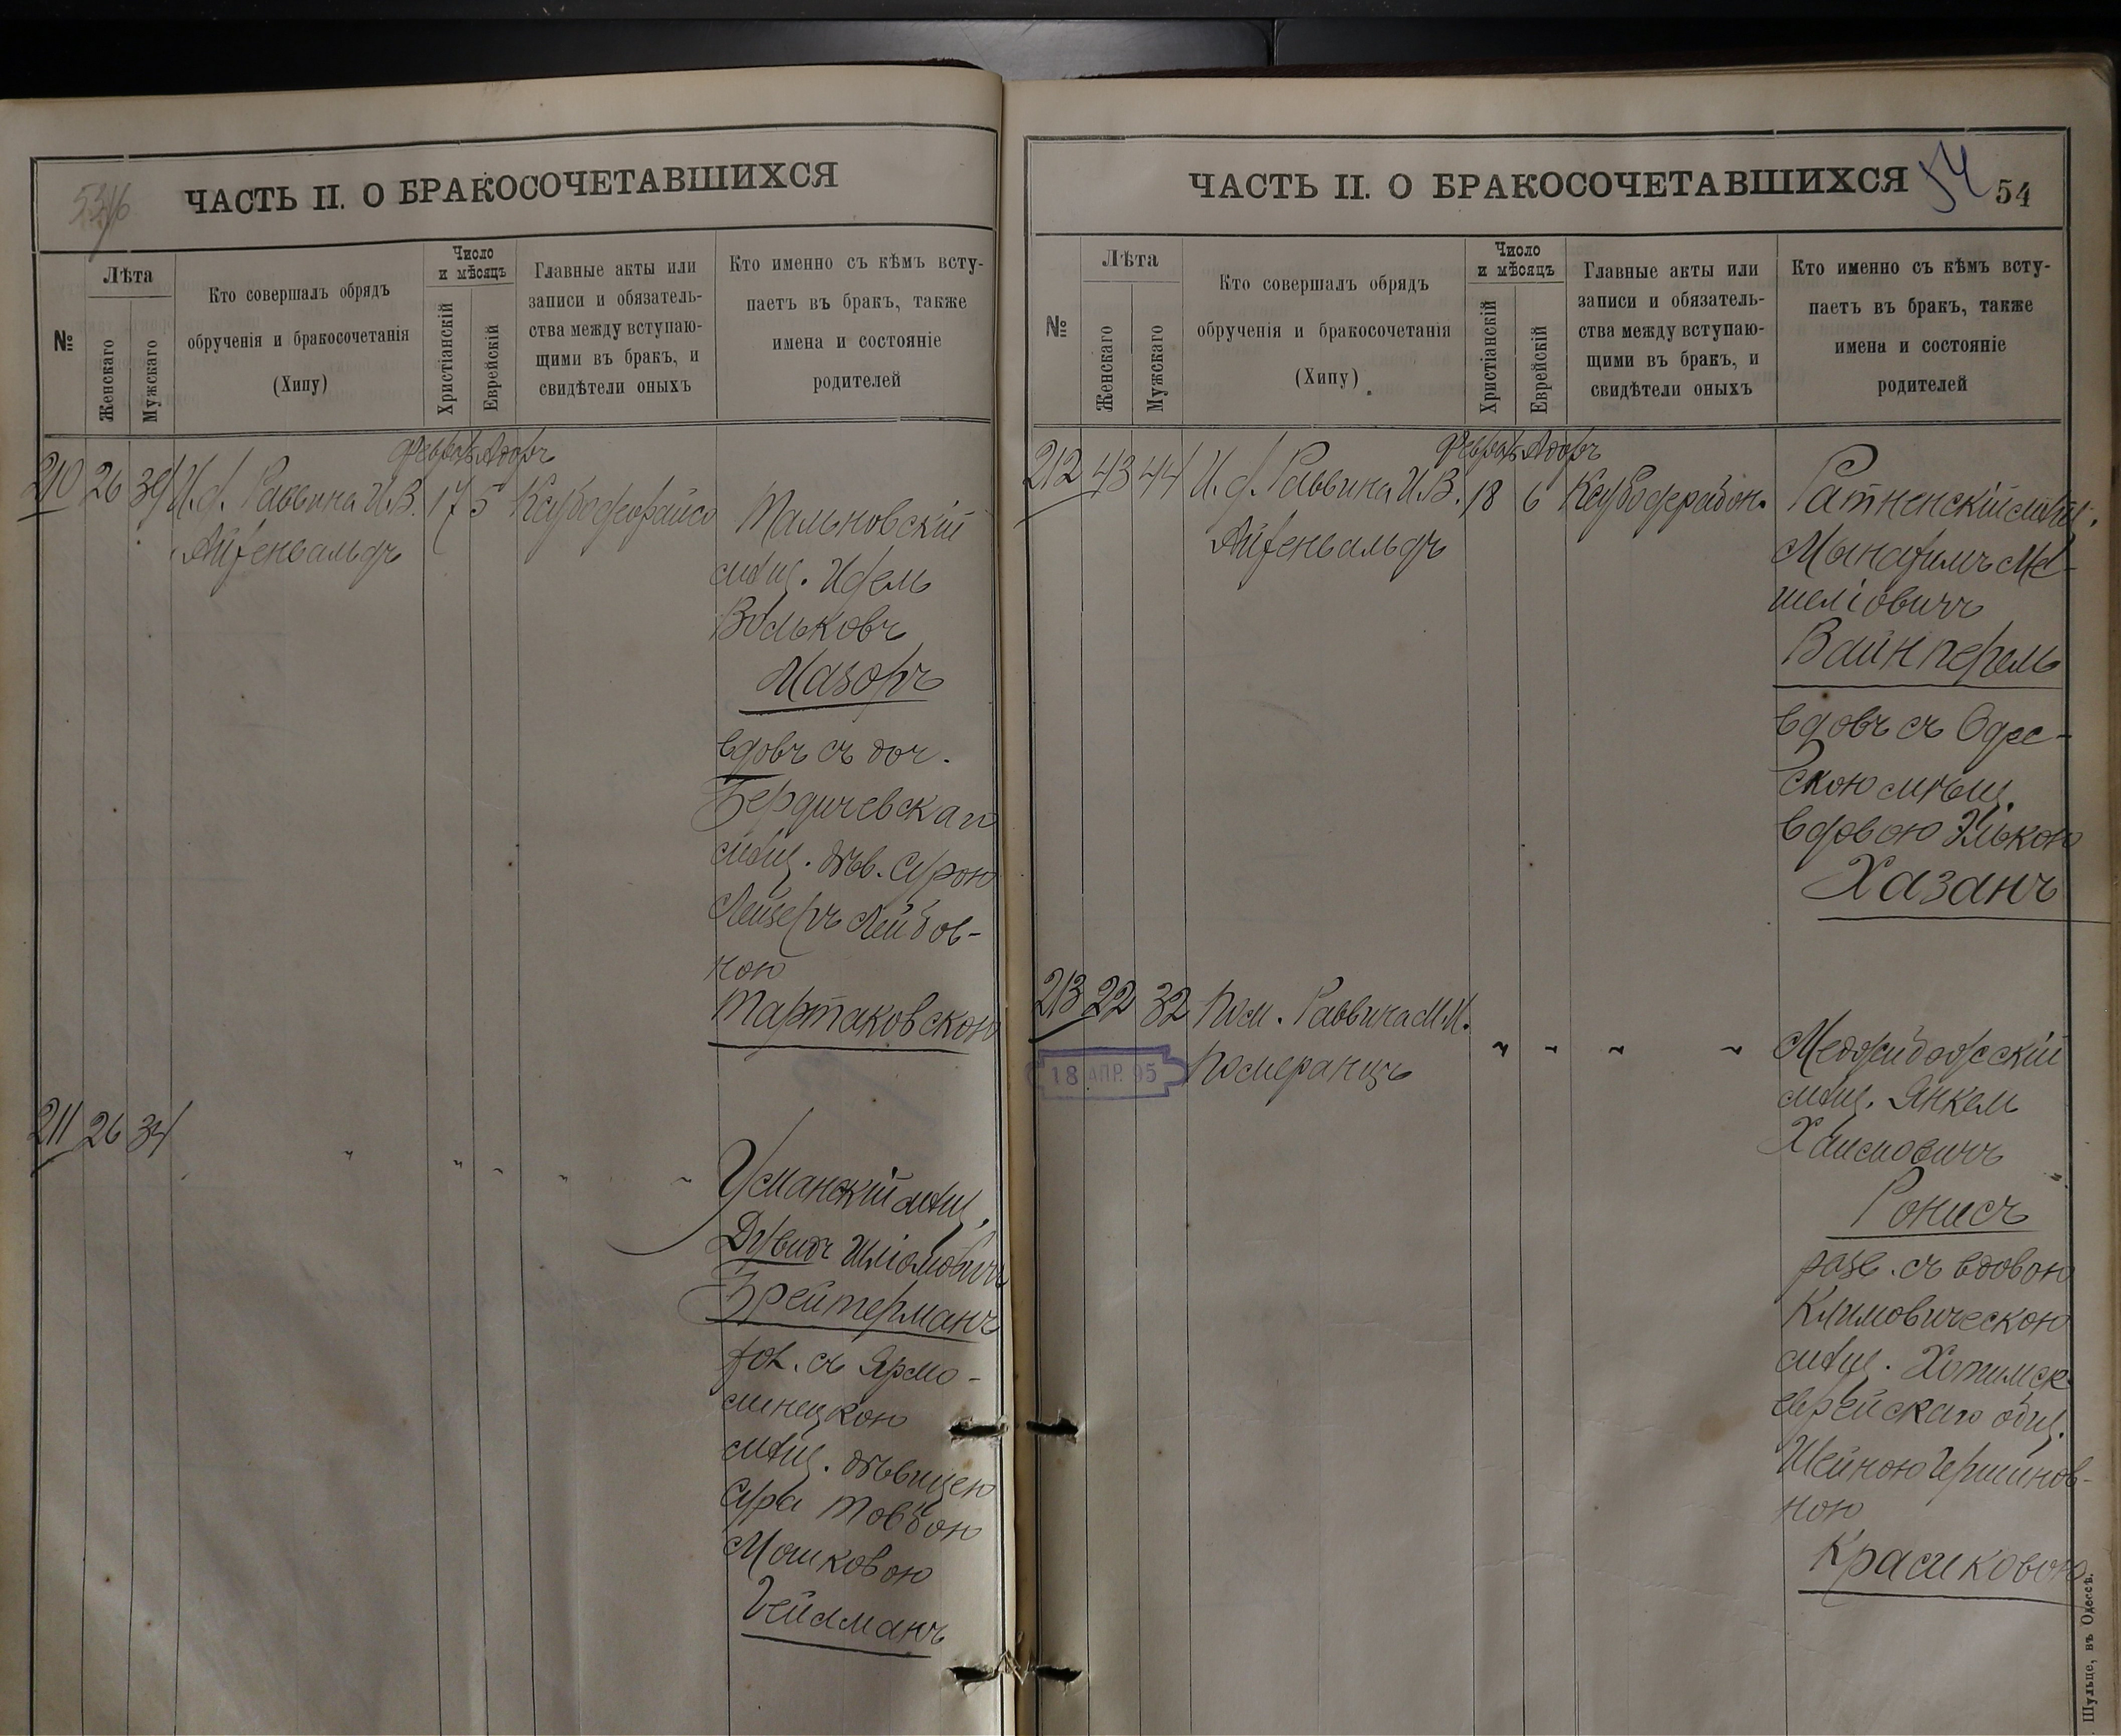 5346
ЧАСТЬ II. О БРАКОСОЧЕТАВШИХСЯ
№
Лѣта
Женскаго
Мужскаго
Кто совершалъ обрядъ
обрученія и бракосочетанія
(Хипу)
Число
и мѣсяцъ
Христіанскій
Еврейскій
Главные акты или
записи и обязатель-
ства между вступаю-
щими въ бракъ, и
свидѣтели оныхъ
Кто именно съ кѣмъ всту-
паетъ въ бракъ, также
имена и состояніе
родителей
Адоръ
210 26 39 И. д. Раввина И.В. 17 5
Айзенвальдъ
Тальновскій
мѣщ. Идель
Вольковъ
Мазоръ
вдовъ съ доч.
Бердичевскаго
мѣщ. дѣв. Сурою
Лейзеръ Лейбов-
ною
Тартаковскою
211 26 34 " " " " "
Уманскій мѣщ.
Дувидъ Шліомовичъ
Брейтерманъ
хол. съ Ярмо-
линецкою
мѣщ. дѣвицею
Сура Товбою
Мошковою
Гейлманъ
ЧАСТЬ II. О БРАКОСОЧЕТАВШИХСЯ
54
54
№
Лѣта
Женскаго
Мужскаго
Кто совершалъ обрядъ
обрученія и бракосочетанія
(Хипу)
Число
и мѣсяцъ
Христіанскій
Еврейскій
Главные акты или
записи и обязатель-
ства между вступаю-
щими въ бракъ, и
свидѣтели оныхъ
Кто именно съ кѣмъ всту-
паетъ въ бракъ, также
имена и состояніе
родителей
Адоръ
212 43 44 И. д. Раввина И.В. 18 6
Айзенвальдъ
Ратненскій мѣщ.
Мынахимъ Ме-
шеліовичъ
Вайнперель
вдовъ съ Одес-
скою мѣщ.
вдовою Элькою
Хазанъ
213 22 32 Пом. Раввина М.И.
Померанцъ " " " "
18 АПР. 95
Меджибожскій
мѣщ. Янкель
Хаимовичъ
Ронисъ
разв. съ вдовою
Климовическою
мѣщ. Хотимск
еврейскаго общ.
Шейною Гершинов-
ною
Красиковою
Шульце, въ Одессѣ.